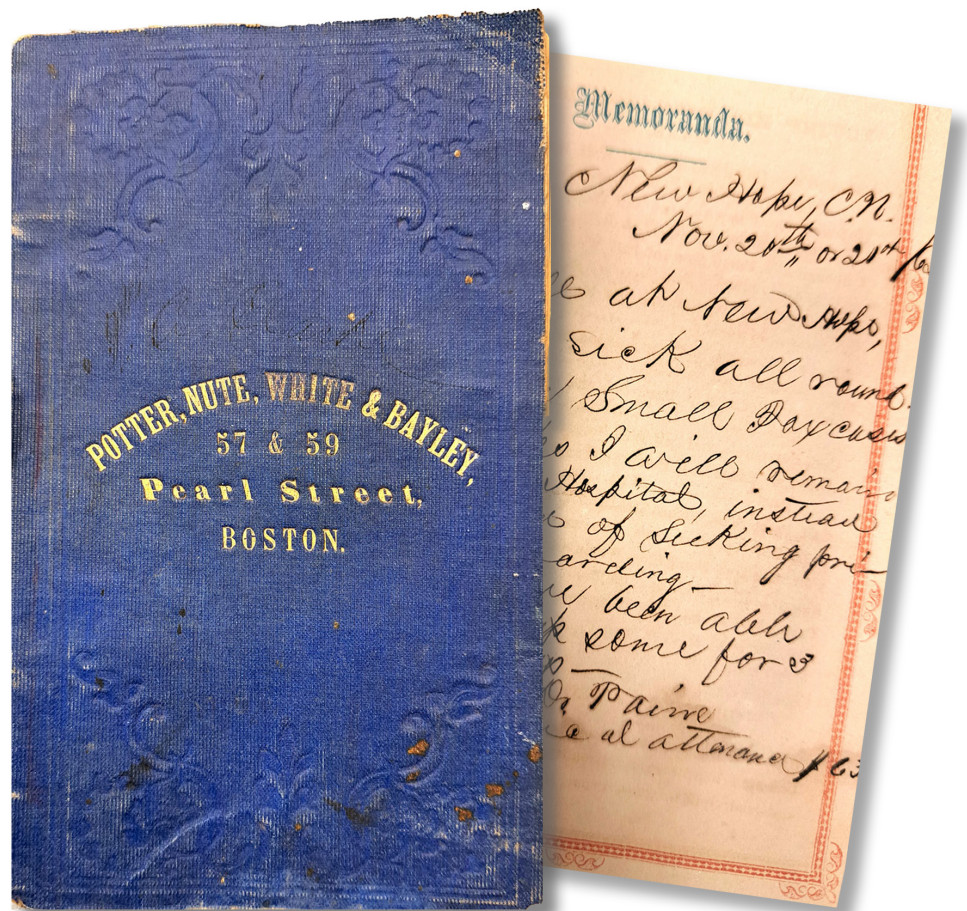 POTTER, NUTE, WHITE & BAYLEY,
57 & 59
Pearl Street,
BOSTON.
Memoranda.
New Hope, C.N.
Nov. 20th or 21st
at New Hope,
Sick all round.
Small Pox cases
I will remain
Hospital, instead
of seeking pri-
arding—
been able
some for 3
Dr. Paine
al attendance